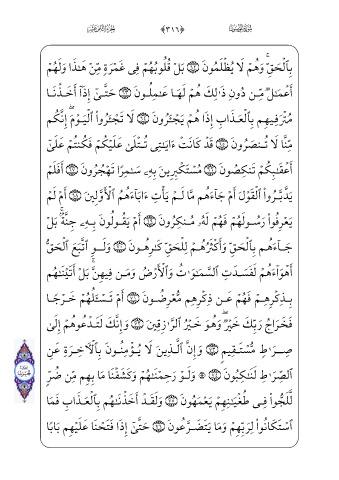 سورة المؤمنون ﴿٣١٦﴾ الجزء الثامن عشر
بِٱلْحَقِّ وَهُمْ لَا يُظْلَمُونَ ۝٦٢ بَلْ قُلُوبُهُمْ فِى غَمْرَةٍ مِّنْ هَـٰذَا وَلَهُمْ
أَعْمَـٰلٌ مِّن دُونِ ذَٰلِكَ هُمْ لَهَا عَـٰمِلُونَ ۝٦٣ حَتَّىٰٓ إِذَآ أَخَذْنَا
مُتْرَفِيهِم بِٱلْعَذَابِ إِذَا هُمْ يَجْـَٔرُونَ ۝٦٤ لَا تَجْـَٔرُوا۟ ٱلْيَوْمَ ۖ إِنَّكُم
مِّنَّا لَا تُنصَرُونَ ۝٦٥ قَدْ كَانَتْ ءَايَـٰتِى تُتْلَىٰ عَلَيْكُمْ فَكُنتُمْ عَلَىٰٓ
أَعْقَـٰبِكُمْ تَنكِصُونَ ۝٦٦ مُسْتَكْبِرِينَ بِهِۦ سَـٰمِرًا تَهْجُرُونَ ۝٦٧ أَفَلَمْ
يَدَّبَّرُوا۟ ٱلْقَوْلَ أَمْ جَآءَهُم مَّا لَمْ يَأْتِ ءَابَآءَهُمُ ٱلْأَوَّلِينَ ۝٦٨ أَمْ لَمْ
يَعْرِفُوا۟ رَسُولَهُمْ فَهُمْ لَهُۥ مُنكِرُونَ ۝٦٩ أَمْ يَقُولُونَ بِهِۦ جِنَّةٌۢ ۚ بَلْ
جَآءَهُم بِٱلْحَقِّ وَأَكْثَرُهُمْ لِلْحَقِّ كَـٰرِهُونَ ۝٧٠ وَلَوِ ٱتَّبَعَ ٱلْحَقُّ
أَهْوَآءَهُمْ لَفَسَدَتِ ٱلسَّمَـٰوَٰتُ وَٱلْأَرْضُ وَمَن فِيهِنَّ ۚ بَلْ أَتَيْنَـٰهُم
بِذِكْرِهِمْ فَهُمْ عَن ذِكْرِهِم مُّعْرِضُونَ ۝٧١ أَمْ تَسْـَٔلُهُمْ خَرْجًا
فَخَرَاجُ رَبِّكَ خَيْرٌ ۖ وَهُوَ خَيْرُ ٱلرَّٰزِقِينَ ۝٧٢ وَإِنَّكَ لَتَدْعُوهُمْ إِلَىٰ
صِرَٰطٍ مُّسْتَقِيمٍ ۝٧٣ وَإِنَّ ٱلَّذِينَ لَا يُؤْمِنُونَ بِٱلْـَٔاخِرَةِ عَنِ
ٱلصِّرَٰطِ لَنَـٰكِبُونَ ۝٧٤ ۞ وَلَوْ رَحِمْنَـٰهُمْ وَكَشَفْنَا مَا بِهِم مِّن ضُرٍّ
لَّلَجُّوا۟ فِى طُغْيَـٰنِهِمْ يَعْمَهُونَ ۝٧٥ وَلَقَدْ أَخَذْنَـٰهُم بِٱلْعَذَابِ فَمَا
ٱسْتَكَانُوا۟ لِرَبِّهِمْ وَمَا يَتَضَرَّعُونَ ۝٧٦ حَتَّىٰٓ إِذَا فَتَحْنَا عَلَيْهِم بَابًا